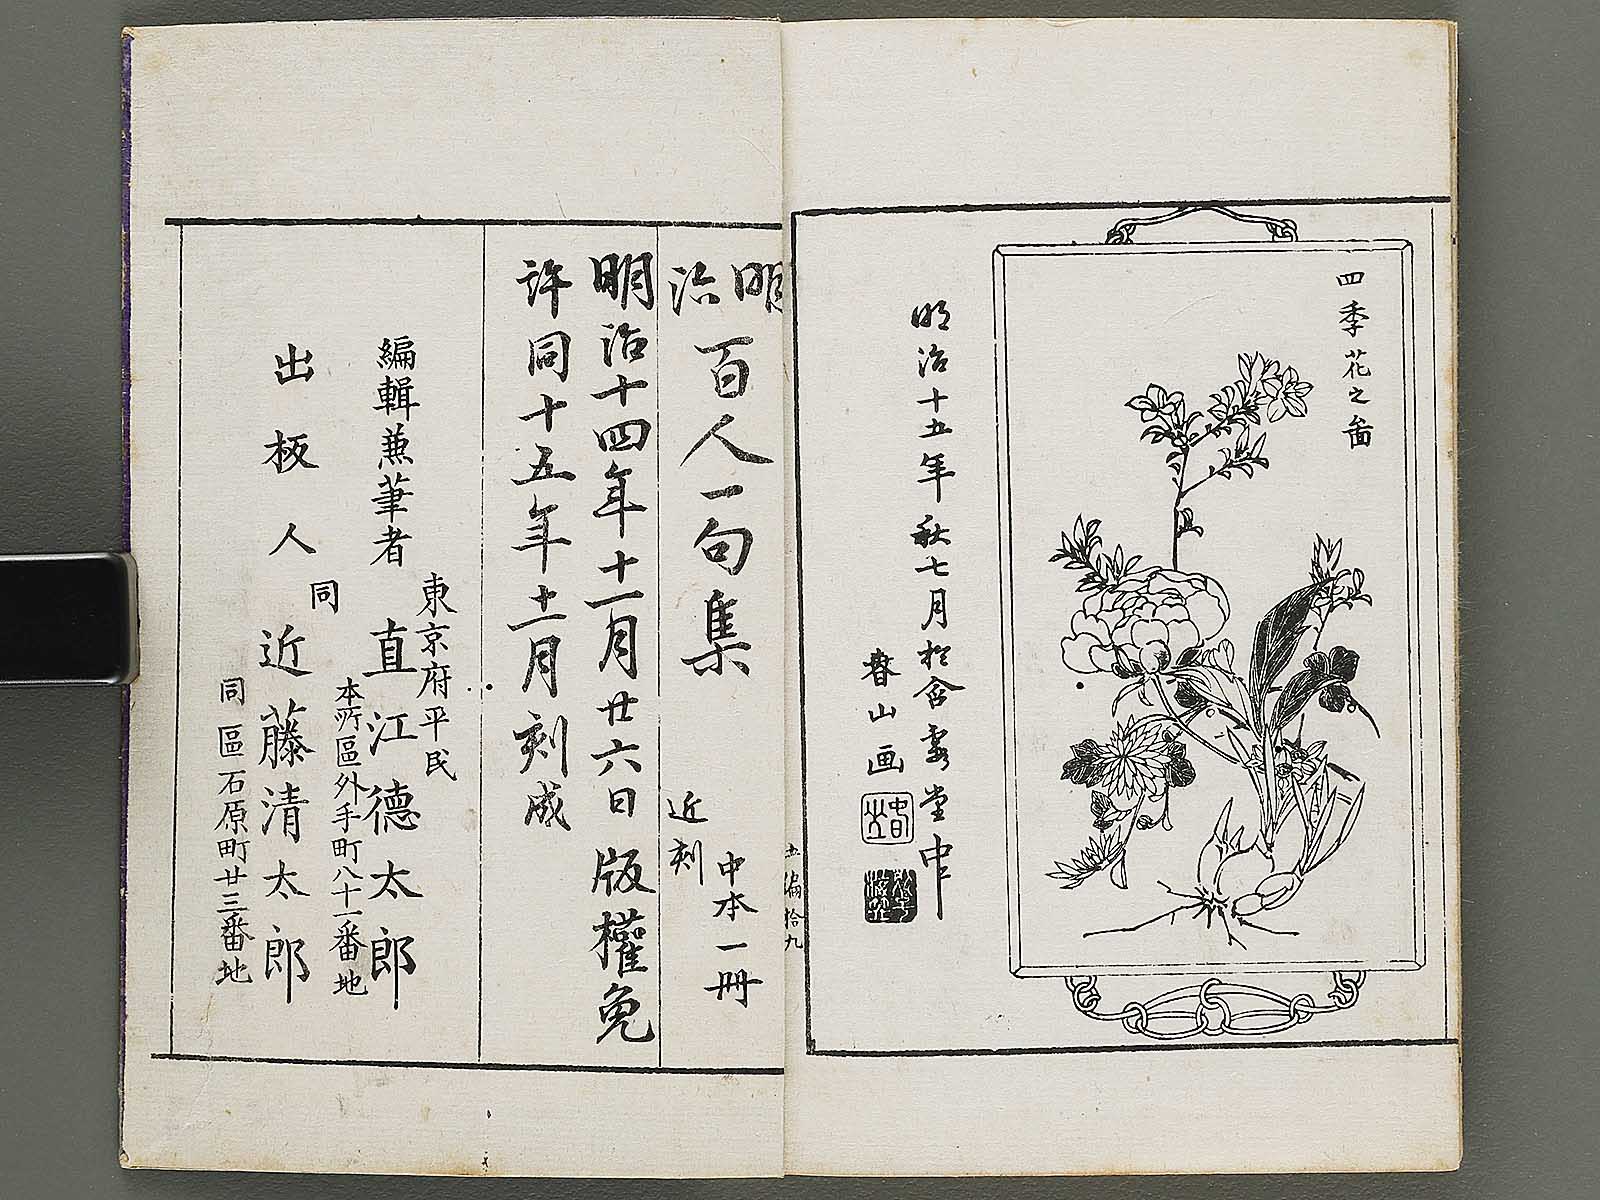 四季花之圖
明治十五年秋七月於含雪堂中
春山画
五編拾九
明治
百人一句集
近刻
中本一冊
明治十四年十一月廿六日版權免
許同十五年十二月刻成
東京府平民
編輯兼筆者 直江德太郎
本所區外手町八十一番地
同
出板人 近藤清太郎
同區石原町廿三番地